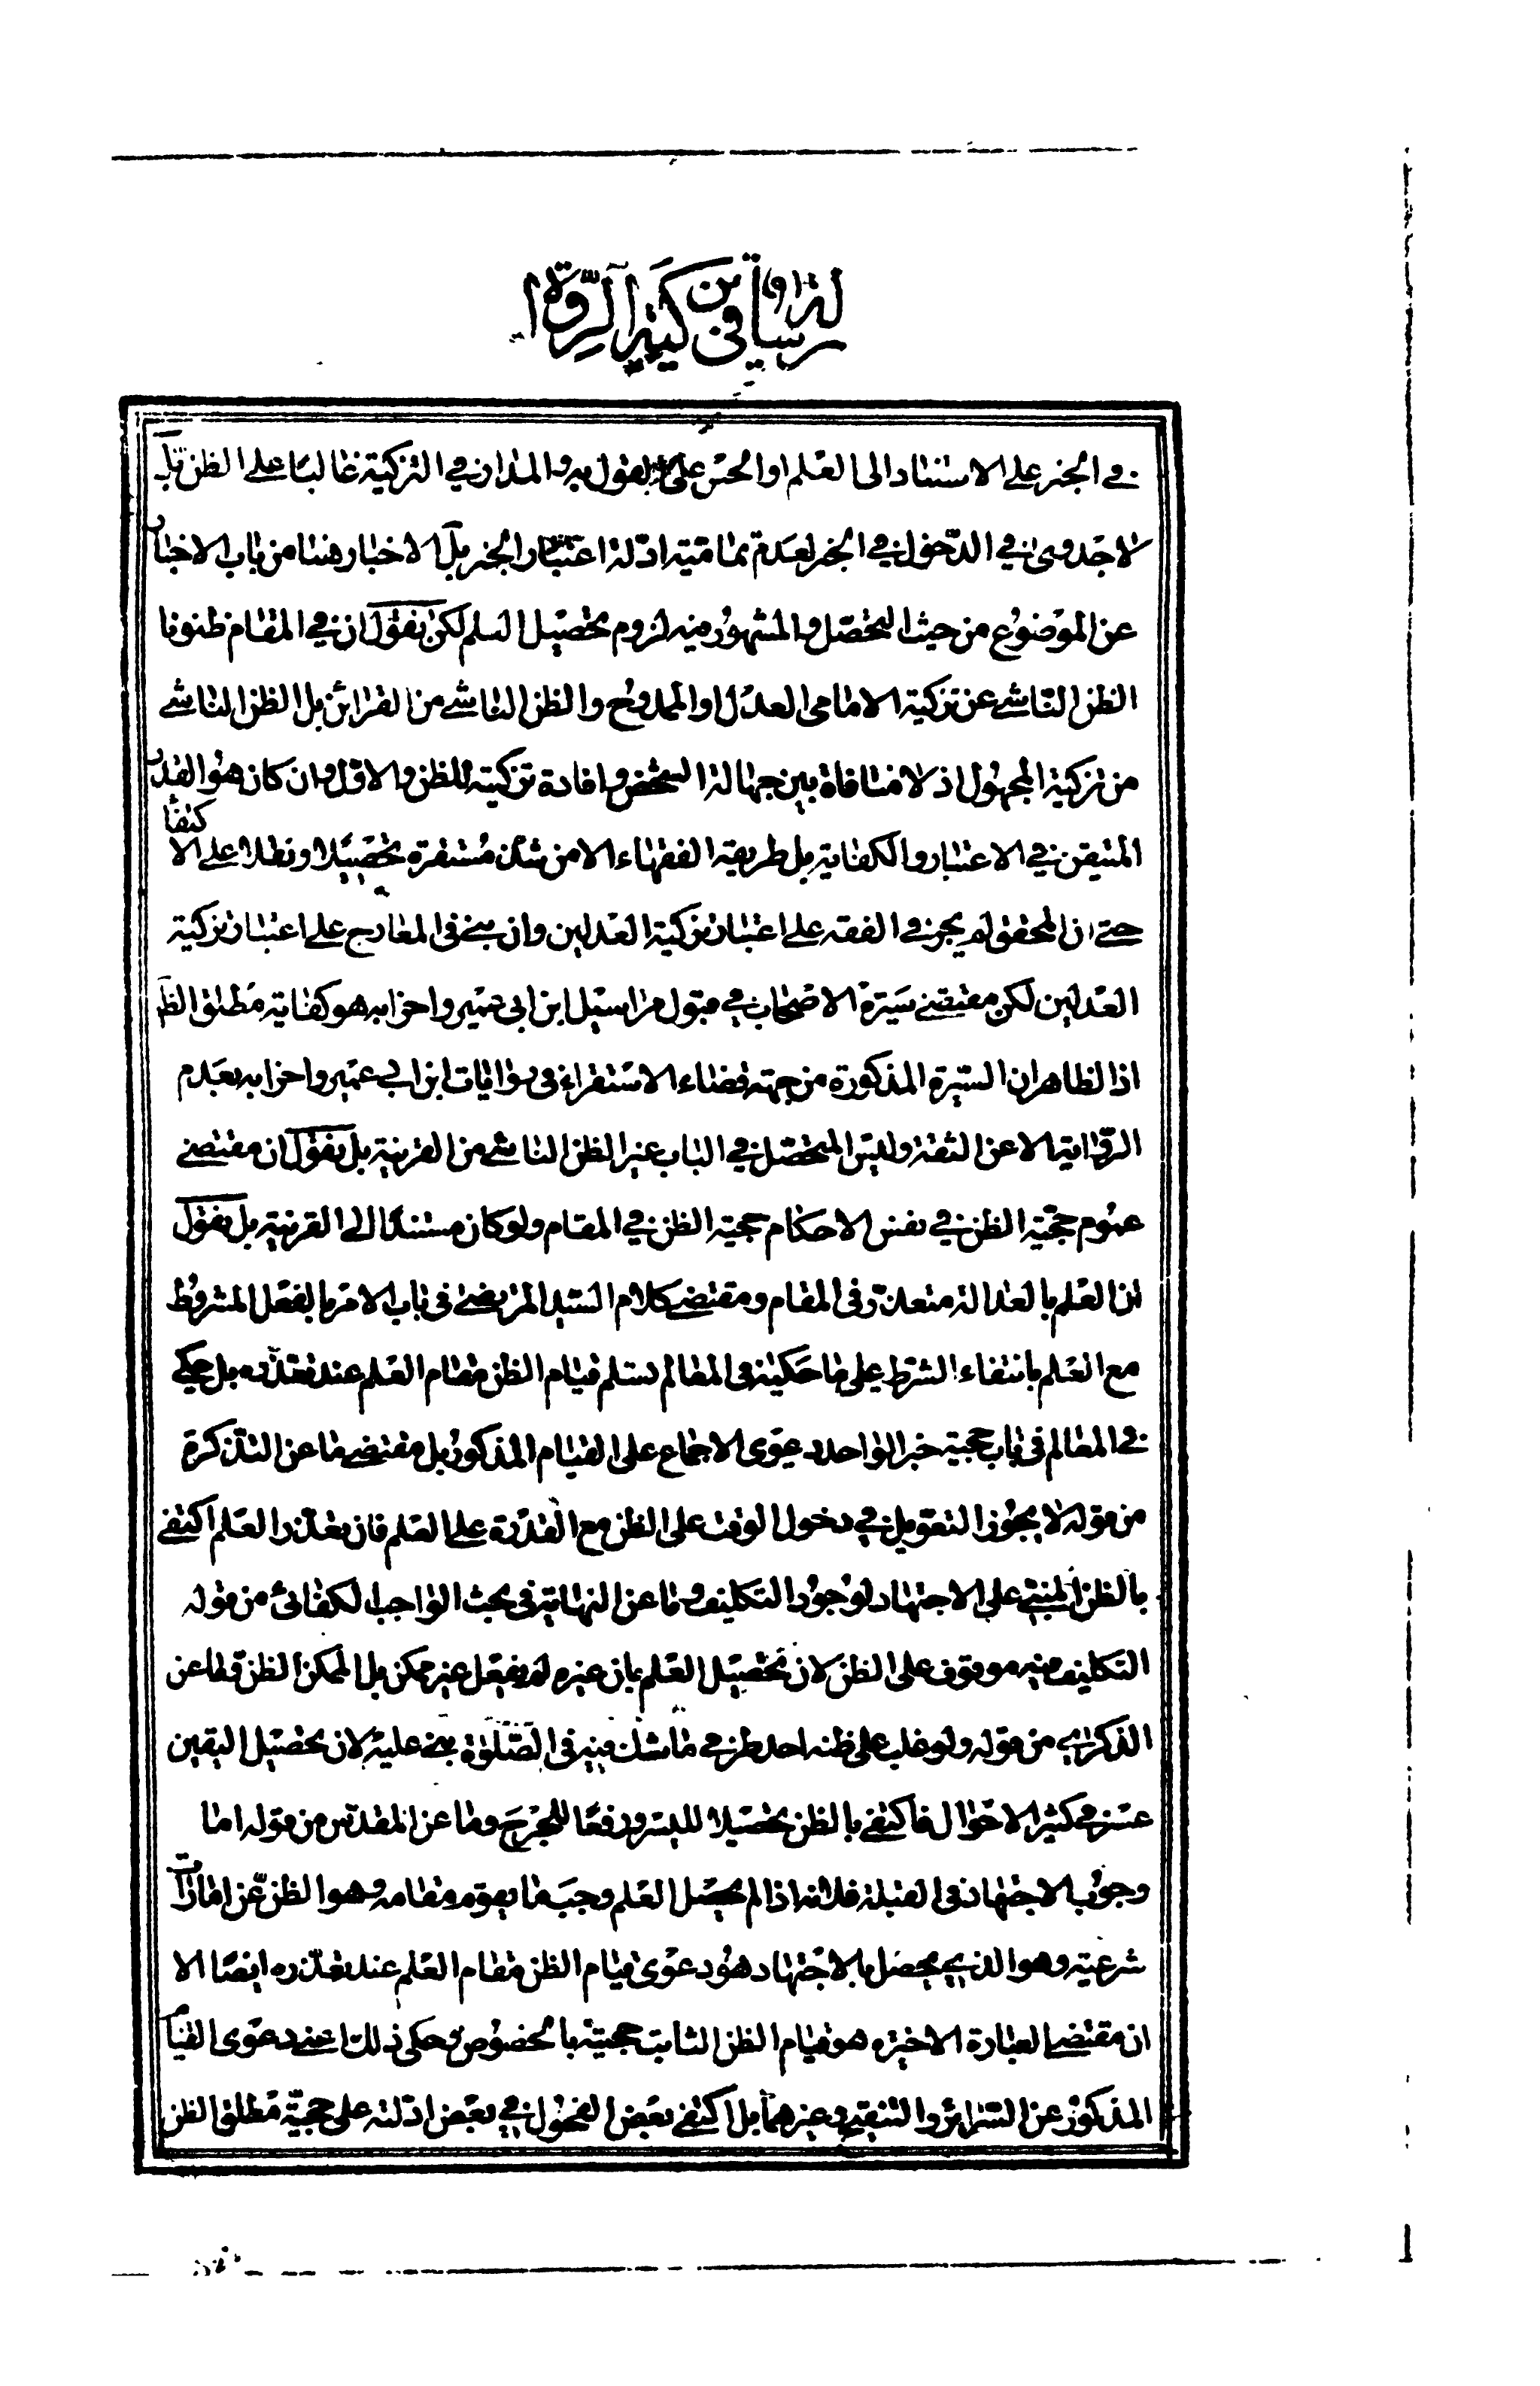 رسالة في تزكية الرواة
في الخبر على الاستناد الى العلم او الحس على القول به والمدار في التزكية غالبا على الظن بل
لا جدوى في الدخول في الخبر لعدم تمامية ادلة اعتبار الخبر بل الاخبار هنا من باب الاخبار
عن الموضوع من حيث التحصل والمشهور فيه لزوم تحصيل العلم لكن نقول ان في المقام ظنونا
الظن الناشي عن تزكية الامامى العدل او الممدوح والظن الناشي من القرائن بل الظن الناشي
من تزكية المجهول اذ لا منافاة بين جهالة الشخص وافادة تزكيته للظن والاول وان كان هو القدر
المتيقن في الاعتبار والكفاية بل طريقة الفقهاء الا من شذ مستقرة تحصيلا ونقلا على الاكتفاء
حتى ان المحقق لم يجر في الفقه على اعتبار تزكية العدلين وان بنى فى المعارج على اعتبار تزكية
العدلين لكن مقتضى سيرة الاصحاب في قبول مراسيل ابن ابى عمير واضرابه هو كفاية مطلق الظن
اذ الظاهر ان السيرة المذكورة من جهة قضاء الاستقراء فى روايات ابن ابي عمير واضرابه بعدم
الرواية الا عن الثقة وليس المتحصل في الباب غير الظن الناشي من القرينة بل نقول ان مقتضى
عموم حجية الظن في نفس الاحكام حجية الظن في المقام ولو كان مستندا الى القرينة بل نقول
ان العلم بالعدالة متعذر فى المقام ومقتضى كلام السيد المرتضى فى باب الامر بالفعل المشروط
مع العلم بانتفاء الشرط على ما حكيه فى المعالم تسلم قيام الظن مقام العلم عند تعذره بل حكى
في المعالم فى باب حجية خبر الواحد دعوى الاجماع على القيام المذكور بل مقتضى ما عن التذكرة
من قوله لا يجوز التعويل في دخول الوقت على الظن مع القدرة على العلم فان تعذر العلم اكتفى
بالظن المبنى على الاجتهاد لوجود التكليف وما عن النهاية فى بحث الواجب الكفائى من قوله
التكليف فيه موقوف على الظن لان تحصيل العلم بان غيره لم يفعل غير ممكن بل الممكن الظن وما عن
الذكرى من قوله ولو غلب على ظنه احد طرفي ما شك فيه فى الصلوة بنى عليه لان تحصيل اليقين
عسر في كثير الاحوال فاكتفى بالظن تحصيلا لليسر ودفعا للحرج وما عن المقدس من قوله اما
وجوب الاجتهاد فى القبلة فلانه اذا لم يحصل العلم وجب ما يقوم مقامه وهو الظن عن امارات
شرعية وهو الذي يحصل بالاجتهاد هو دعوى قيام الظن مقام العلم عند تعذره ايضا الا
ان مقتضى العبارة الاخيره هو قيام الظن الثابت حجيته بالخصوص وحكى ذلك اعنى دعوى القيام
المذكور عن السرائر والتنقيح وغيرهما بل اكتفى بعض الفحول في بعض ادلته على حجية مطلق الظن